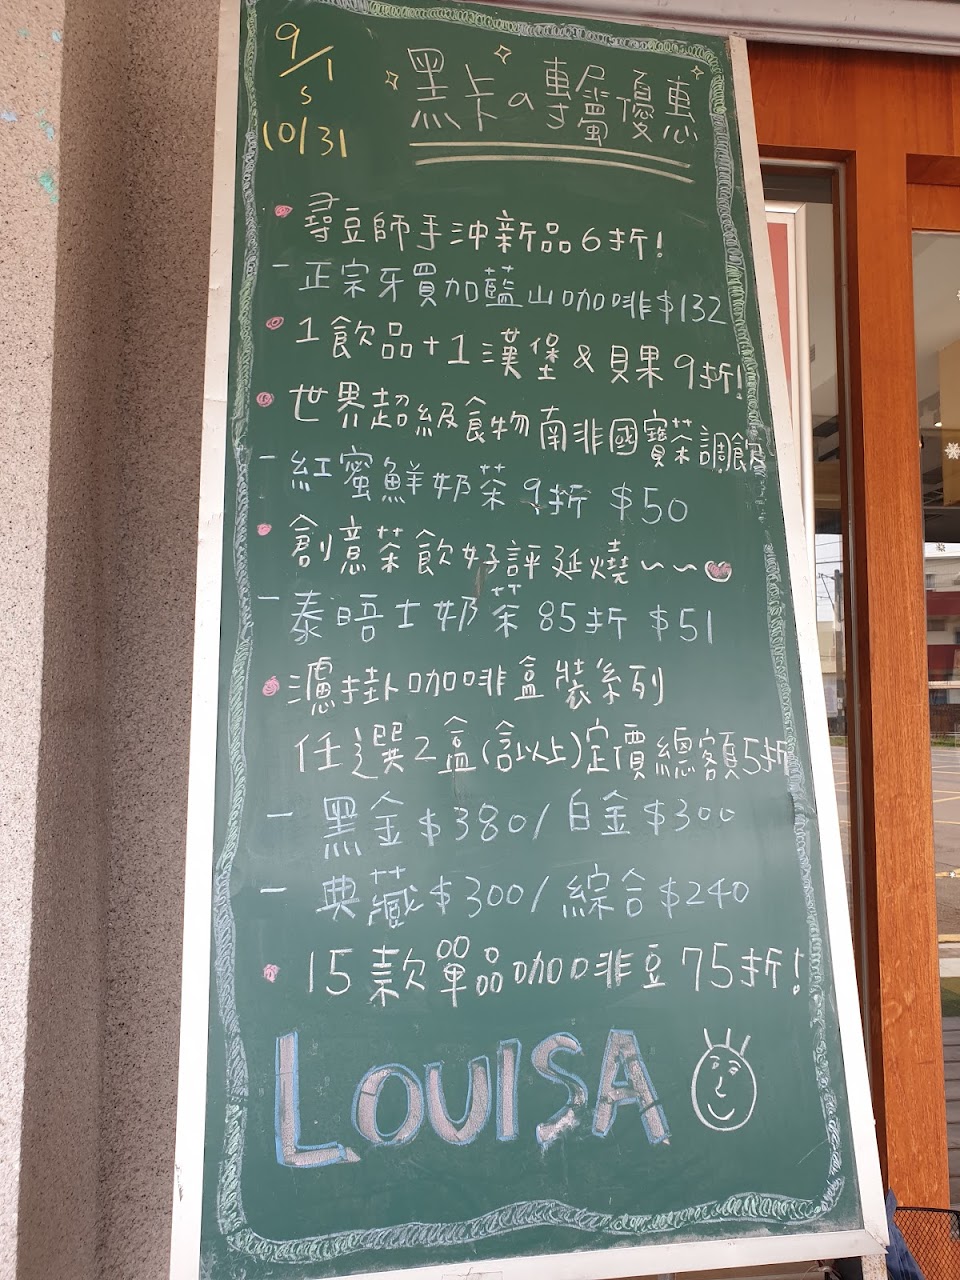 9/1
s
10/31
黑卡a專屬優惠
尋豆師手沖新品6折!
－正宗牙買加藍山咖啡$132
1飲品+1漢堡&貝果9折!
世界超級食物南非國寶茶調飲
－紅蜜鮮奶茶9折 $50
創意茶飲好評延燒~~
－泰晤士奶茶85折 $51
濾掛咖啡盒裝系列
任選2盒(含以上)定價總額5折
－黑金$380/白金$300
－典藏$300/綜合$240
15款單品咖啡豆75折!
LOUISA